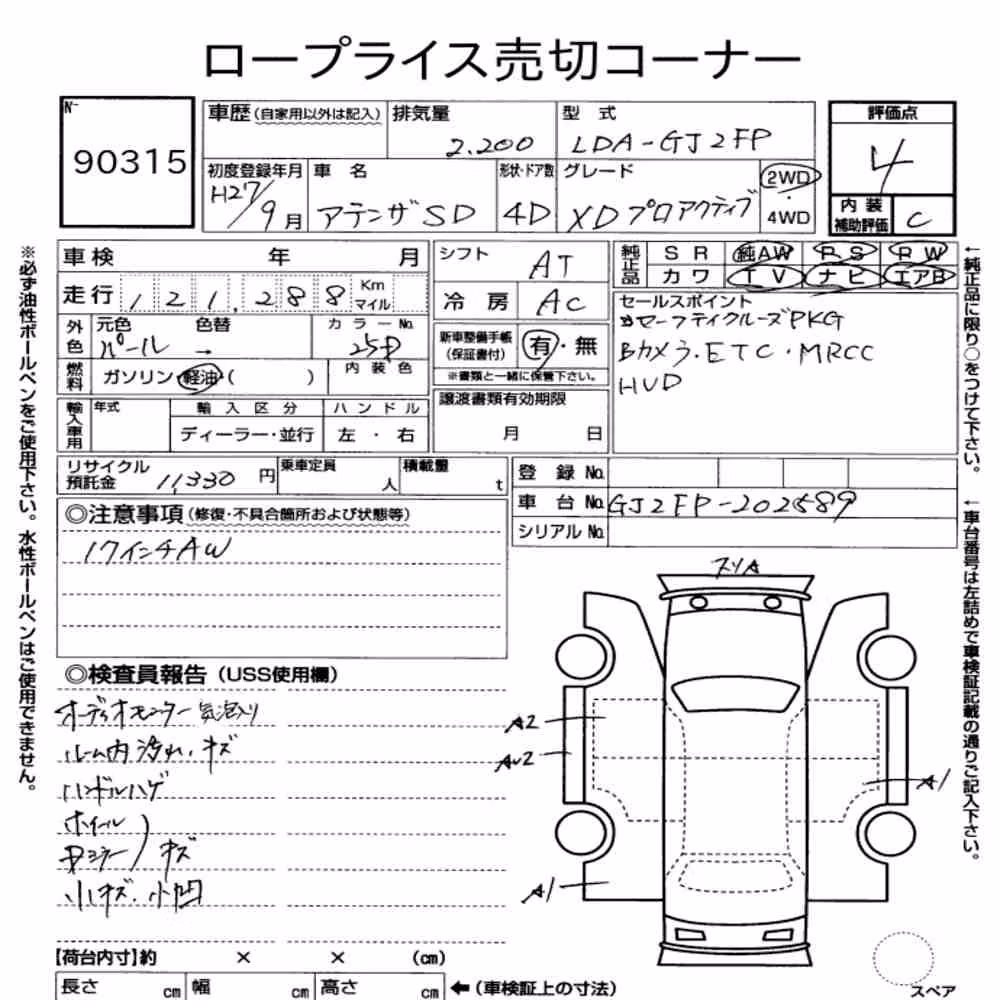 ロープライス売切コーナー
N-
90315
車歴 (自家用以外は記入) 排気量 型 式
2.200 LDA-GJ2FP
初度登録年月 車 名 形状・ドア数 グレード
H27/9月 アテンザSD 4D XDプロアクティブ 2WD・4WD
評価点
4
内 装
補助評価 C
車検 年 月
走行 1 2 1, 2 8 8 Km マイル
外色 元色 色替 カラーNo.
パール → 25D
燃料 ガソリン・軽油・( ) 内 装 色
輸入車用 年式 輸 入 区 分 ハ ン ド ル
ディーラー・並行 左 ・ 右
シフト AT
冷 房 AC
新車整備手帳
(保証書付) 有・無
※書類と一緒に保管下さい。
譲渡書類有効期限
月 日
純正品 S R 純AW P S P W
カ ワ T V ナ ビ エアB
セールスポイント
セーフティクルーズPKG
Bカメラ・ETC・MRCC
HUD
リサイクル
預託金 11,330 円 乗車定員 人 積載量 t
登 録 No.
車 台 No. GJ2FP-202589
シリアル No.
◎注意事項 (修復・不具合箇所および状態等)
17インチAW
◎検査員報告 (USS使用欄)
オーディオモニター気泡入り
ルーム内汚れ・キズ
ハンドルハゲ
ホイール
ミラー ) キズ
小キズ・小凹
スリA
A2
AU2
A1
A1
【荷台内寸】約 × × (cm)
長さ cm 幅 cm 高さ cm ←(車検証上の寸法)
スペア
※必ず油性ボールペンをご使用下さい。水性ボールペンはご使用できません。
←純正品に限り○をつけて下さい。
←車台番号は左詰めで車検証記載の通りご記入下さい。